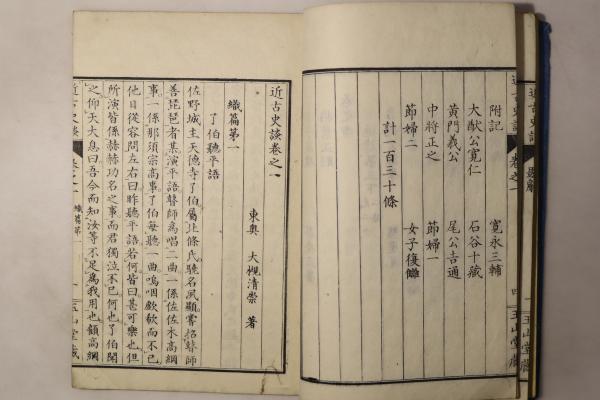 近古史談
玉山堂藏
近古史談 卷之一 四 玉山堂藏
附記 寛永三輔
大猷公寛仁 石谷十藏
黄門義公 尾公吉通
中將正之 節婦一
節婦二 女子復讎
計一百三十條
近古史談卷之一
東奥 大槻清崇 著
織篇第一
了伯聽平語
佐野城主天德寺了伯屬北條氏驍名夙顯嘗招瞽師
善琵琶者某演平語瞽師爲唱二曲一係佐佐木高綱
事一係那須宗高事了伯每聽一曲嗚咽歔欷而不已
他日從容問左右曰昨聽平語若何皆曰甚可樂也但
所演皆係赫赫功名之事而君獨泣不已何也了伯聞
之仰天大息曰吾今而知汝等不足爲我用也顧高綱
近古史談 卷之一 織篇第一 一 玉山堂藏